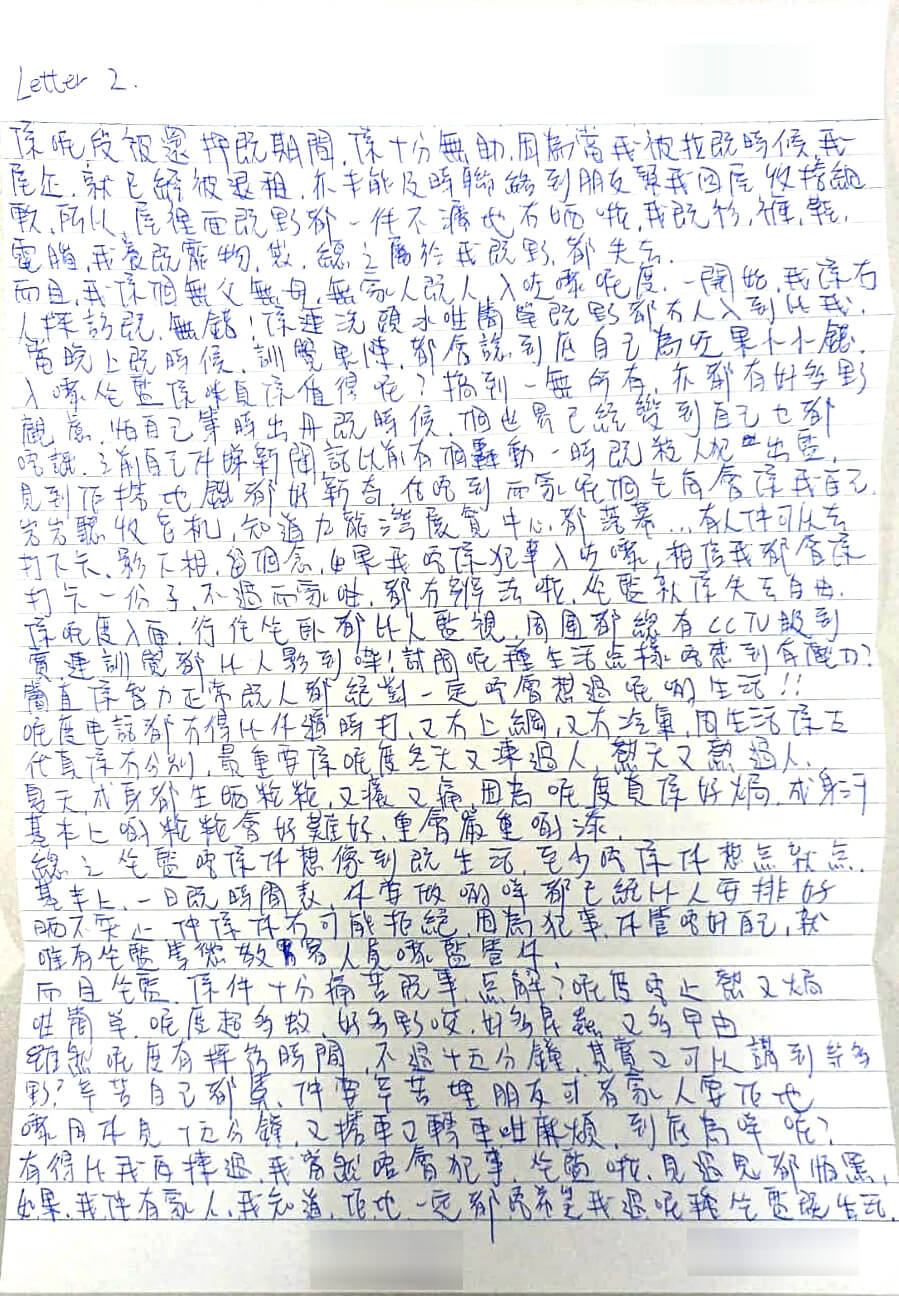 Letter 2.
係呢段被還押既期間,係十分無助,因為當我被拉既時候,我
屋企,就已經被退租,亦未能及時聯絡到朋友幫我回屋收拾細
軟,所以,屋裡面既野都一件不漏地冇晒啦,我既衫,褲,鞋,
電腦,我養既寵物,數,總之屬於我既野,都失去.
而且,我係個無父無母,無家人既人,入咗嚟呢度,一開始,我係冇
人探訪既,無錯!係連洗頭水咁簡單既野都冇人入到比我,
當晚上既時候,訓覺果陣,都會諗到底自己為咗果小小錢,
入嚟坐監係咪真係值得呢?搞到一無所有,亦都有好多野
顧慮,怕自己第時出冊既時候,個世界已經變到自己乜都
唔識,之前自己仲睇新聞話以前有個轟動一時既殺人犯出監,
見到佢搭地鐵都好新奇,估唔到而家呢個乞兒會係我自己.
岩岩聽收音机,知道九龍灣展貿中心都落幕...有人仲可以去
打下卡,影下相,留個念,如果我唔係犯事入咗嚟,相信我都會係
打卡一份子,不過而家咁,都冇辦法啦,坐監就係失去自由.
係呢度入面,行住坐臥都比人監視,周圍都總有CCTV眼到
實,連訓覺都比人影到㗎!試問呢種生活点樣唔感到有壓力?
簡直係智力正常既人都絕對一定唔會想過呢啲生活!!
呢度电話都冇得比你隨時打,又冇上網,又冇冷氣,同生活係古
代真係冇分別,最重要係呢度冬天又凍過人,熱天又熱過人.
夏天,成身都生晒粒粒,又癢又痛,因為呢度真係好焗,成身汗
基本上啲粒粒會好難好,重會嚴重啲添.
總之坐監唔係你想像到既生活,至少唔係你想点就点.
基本上,一日既時間表,你要做啲咩都已經比人安排好
晒不突止,仲係你冇可能拒絕,因為犯事,你管唔好自己,就
唯有坐監等懲教人員嚟監管你.
而且坐監,係件十分痛苦既事,点解?呢度唔止熱又焗
咁簡單,呢度超多蚊,好多野咬,好多昆蟲,又多曱甴
雖然呢度有探訪時間,不過十五分鐘,其實又可以講到幾多
野?辛苦自己都算,仲要辛苦埋朋友或者家人要佢地
嚟用嚟見十五分鐘,又搭車又轉車咁麻煩,到底為咩呢?
有得比我再揀過,我當然唔會犯事,坐監哦,見過見都怕黑,
如果,我仲有家人,我知道,佢地一定都唔希望我過呢種坐監既生活.